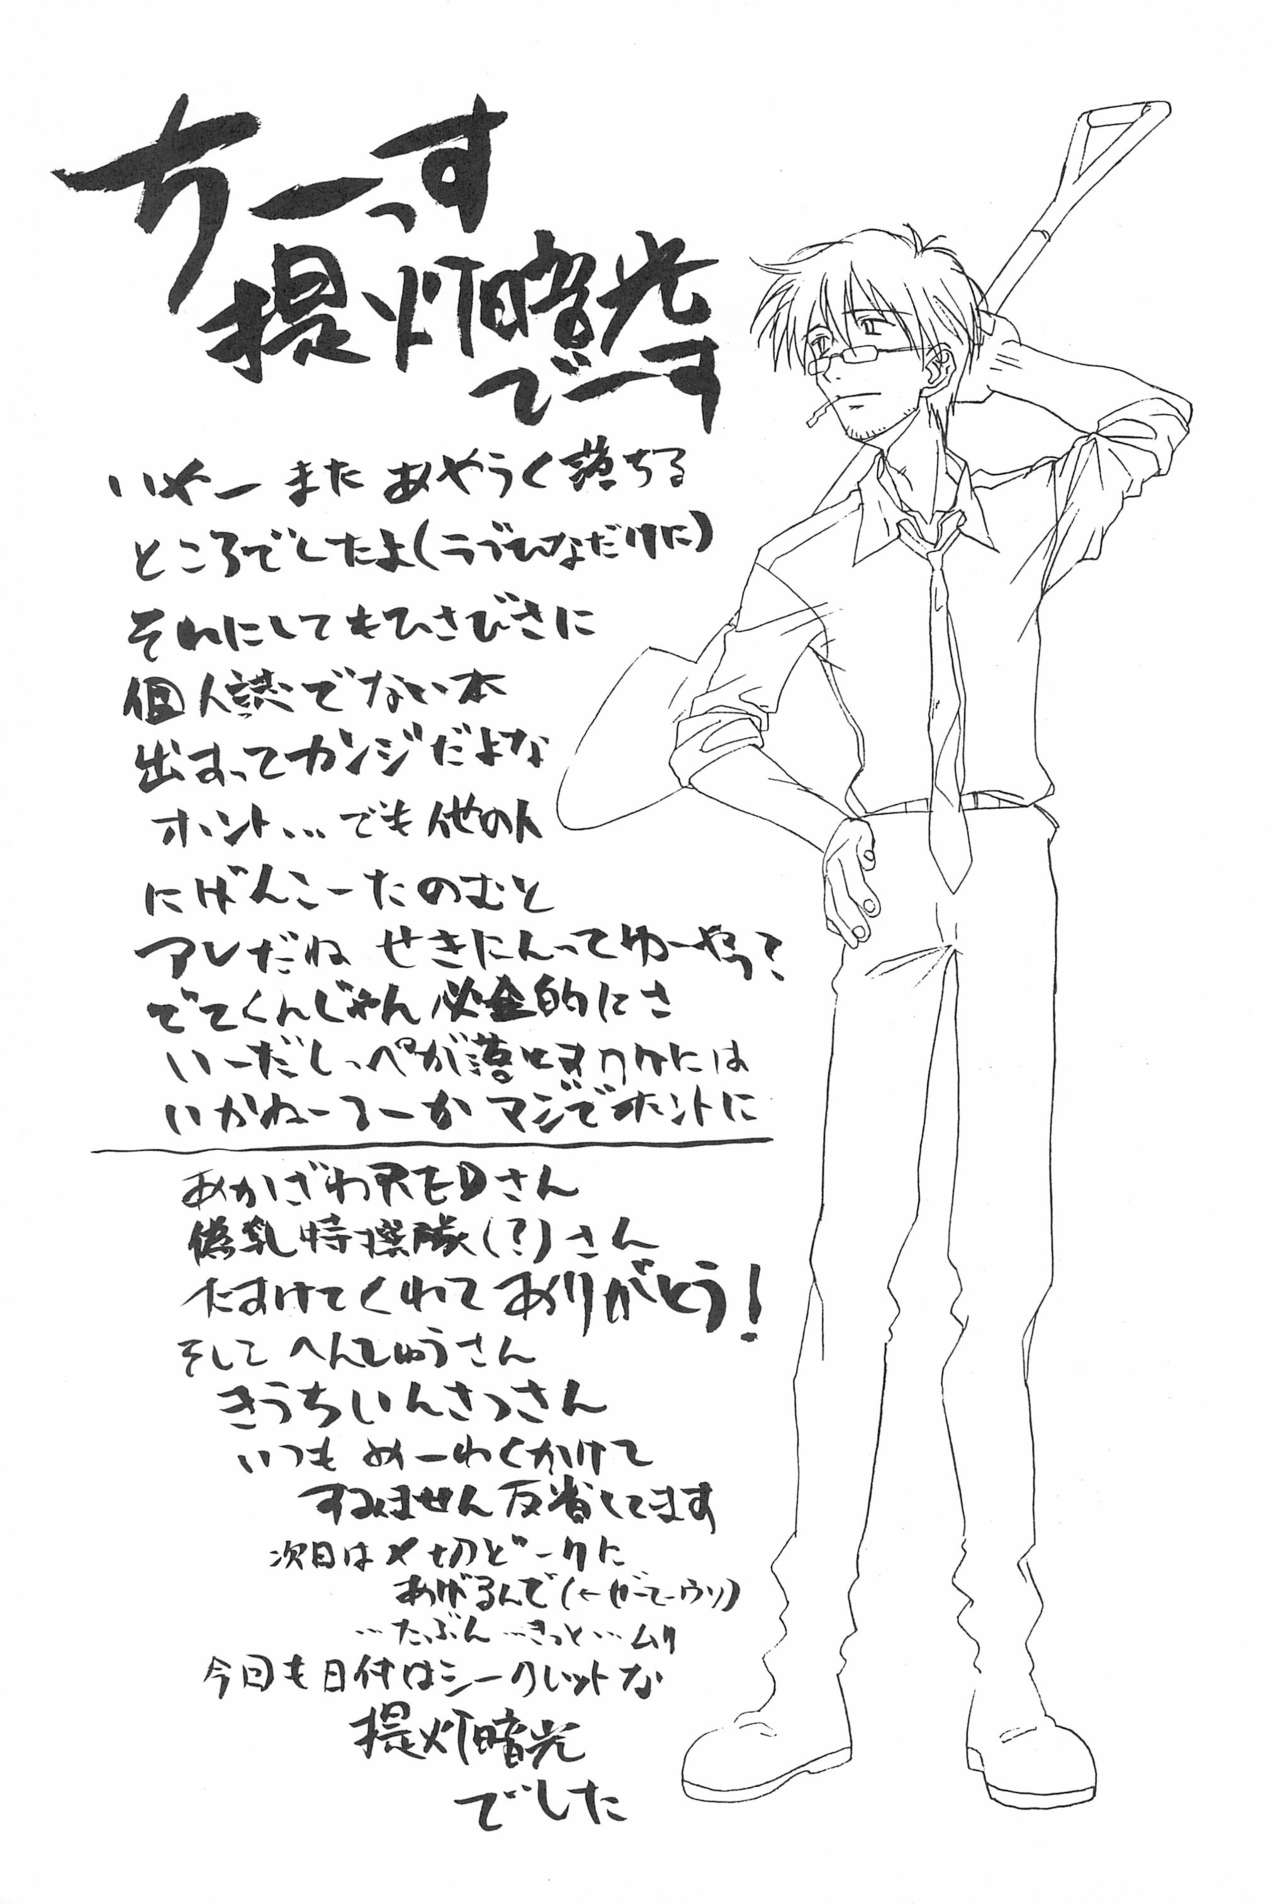 ちーっす
提灯暗光
でーす
いやー また あやうく落ちる
ところでしたよ(ラブひなだけに)
それにしてもひさびさに
個人誌でない本
出すってカンジだよな
ホント… でも 他の人
にげんこーたのむと
アレだね せきにんってゆーやつ?
でてくんじゃん 必金的にさ
いーだしっぺが落とすワケには
いかねーつーか マジでホントに
あかざわREDさん
偽乳特捜隊(?)さん
たすけてくれて ありがとう!
そして へんしゅうさん
きうちいんさつさん
いつも めーわくかけて
すみません 反省してます
次回は〆切どーりに
あげるんで(←ぜーてーウソ)
…たぶん …きっと… ムリ
今回も日付はシークレットな
提灯暗光
でした